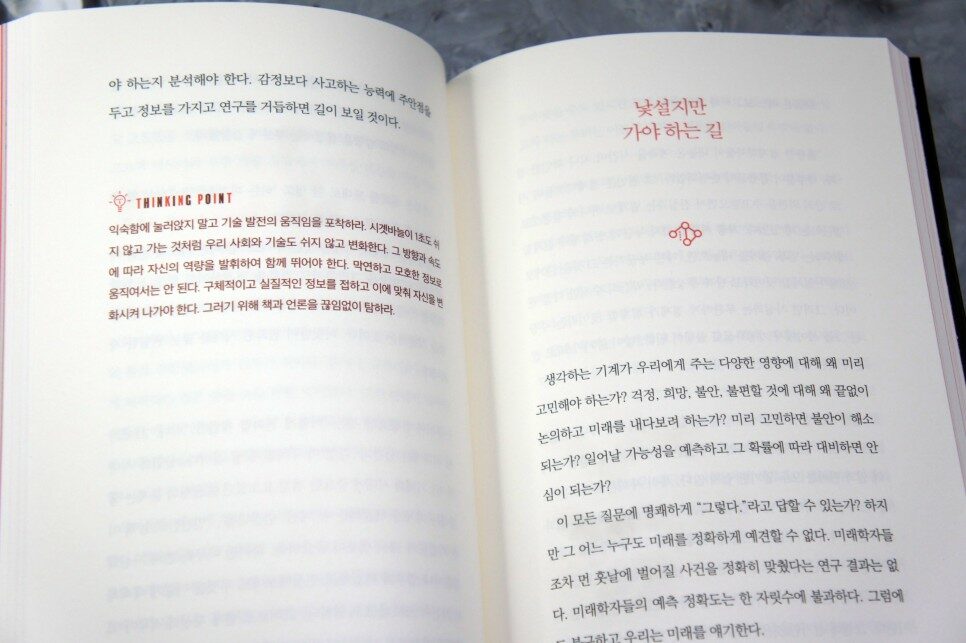 야 하는지 분석해야 한다. 감정보다 사고하는 능력에 주안점을
두고 정보를 가지고 연구를 거듭하면 길이 보일 것이다.
THINKING POINT
익숙함에 눌러앉지 말고 기술 발전의 움직임을 포착하라. 시곗바늘이 1초도 쉬
지 않고 가는 것처럼 우리 사회와 기술도 쉬지 않고 변화한다. 그 방향과 속도
에 따라 자신의 역량을 발휘하여 함께 뛰어야 한다. 막연하고 모호한 정보로
움직여서는 안 된다. 구체적이고 실질적인 정보를 접하고 이에 맞춰 자신을 변
화시켜 나가야 한다. 그러기 위해 책과 언론을 끊임없이 탐하라.
낯설지만
가야 하는 길
생각하는 기계가 우리에게 주는 다양한 영향에 대해 왜 미리
고민해야 하는가? 걱정, 희망, 불안, 불편할 것에 대해 왜 끝없이
논의하고 미래를 내다보려 하는가? 미리 고민하면 불안이 해소
되는가? 일어날 가능성을 예측하고 그 확률에 따라 대비하면 안
심이 되는가?
이 모든 질문에 명쾌하게 “그렇다.”라고 답할 수 있는가? 하지
만 그 어느 누구도 미래를 정확하게 예견할 수 없다. 미래학자들
조차 먼 훗날에 벌어질 사건을 정확히 맞췄다는 연구 결과는 없
다. 미래학자들의 예측 정확도는 한 자릿수에 불과하다. 그럼에
도 불구하고 우리는 미래를 얘기한다.